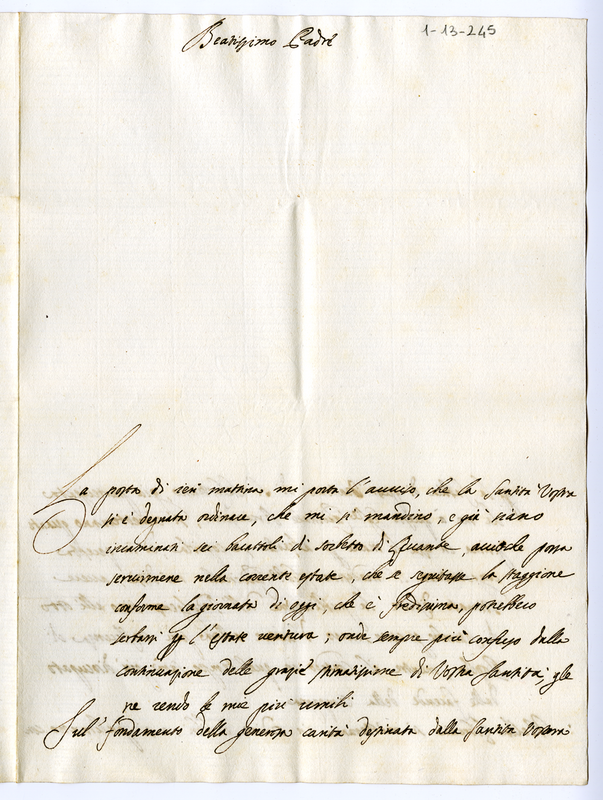 Beatissimo Padre
1-13-245
La posta di ieri mattina mi porta l'auuiso, che la Santità Vostra
si è degnata ordinare, che mi si mandino, e già siano
incaminati sei barattoli di sorbetto di Levante, acciòche possa
seruirmene nella corrente estate, che se seguitasse la staggione
conforme la giornata di oggi, che è fredissima, potrebbero
serbarsi p l'estate ventura; onde sempre più confuso dalla
continuazione delle grazie stimatissime di Vostra Santità, gle
ne rendo le mie più umili
Sul' fondamento della generosa carità destinata dalla Santità Vostra